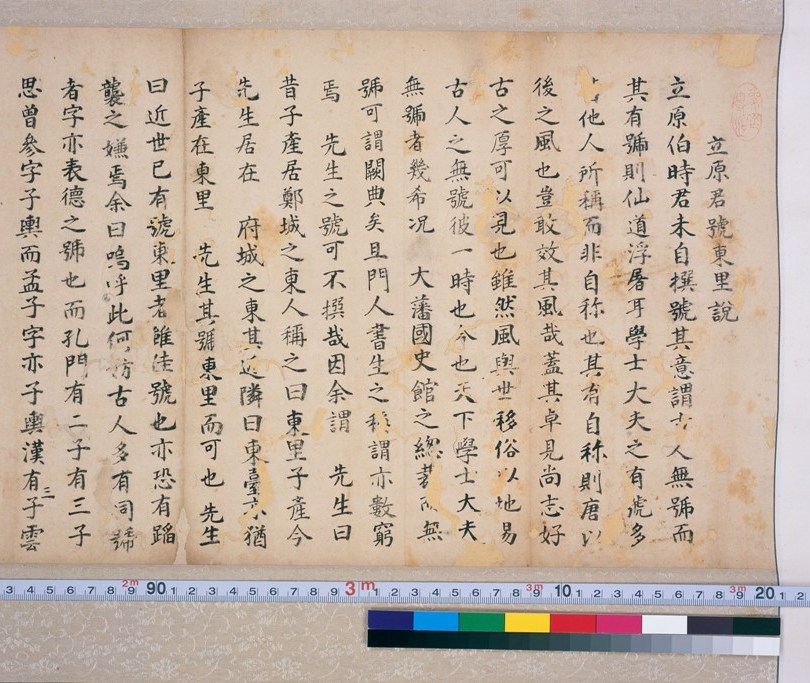 立原君號東里說
立原伯時君未自撰號其意謂古人無號而
其有號則仙道浮屠耳學士大夫之有號多
他人所稱而非自称也其有自称則唐以
後之風也豈敢效其風哉蓋其卓見尚志好
古之厚可以見也雖然風與世移俗以地易
古人之無號彼一時也今也天下學士大夫
無號者幾希况 大藩國史館之總裁而無
號可謂闕典矣且門人書生之称謂亦數窮
焉 先生之號可不撰哉因余謂 先生曰
昔子產居鄭城之東人稱之曰東里子產今
先生居在 府城之東其近隣曰東臺亦猶
子產在東里 先生其號東里而可也 先生
曰近世已有號東里者雖佳號也亦恐有蹈
襲之嫌焉余曰嗚呼此何妨古人多有同號
者字亦表德之號也而孔門有二子有三子
思曾參字子輿而孟子字亦子輿漢有三子雲
3 4 5 6 7 8 2m 9 90 1 2 3 4 5 6 7 8 9 3m 1 2 3 4 5 6 7 8 3m 9 10 1 2 3 4 5 6 7 8 3m 9 20 1 2